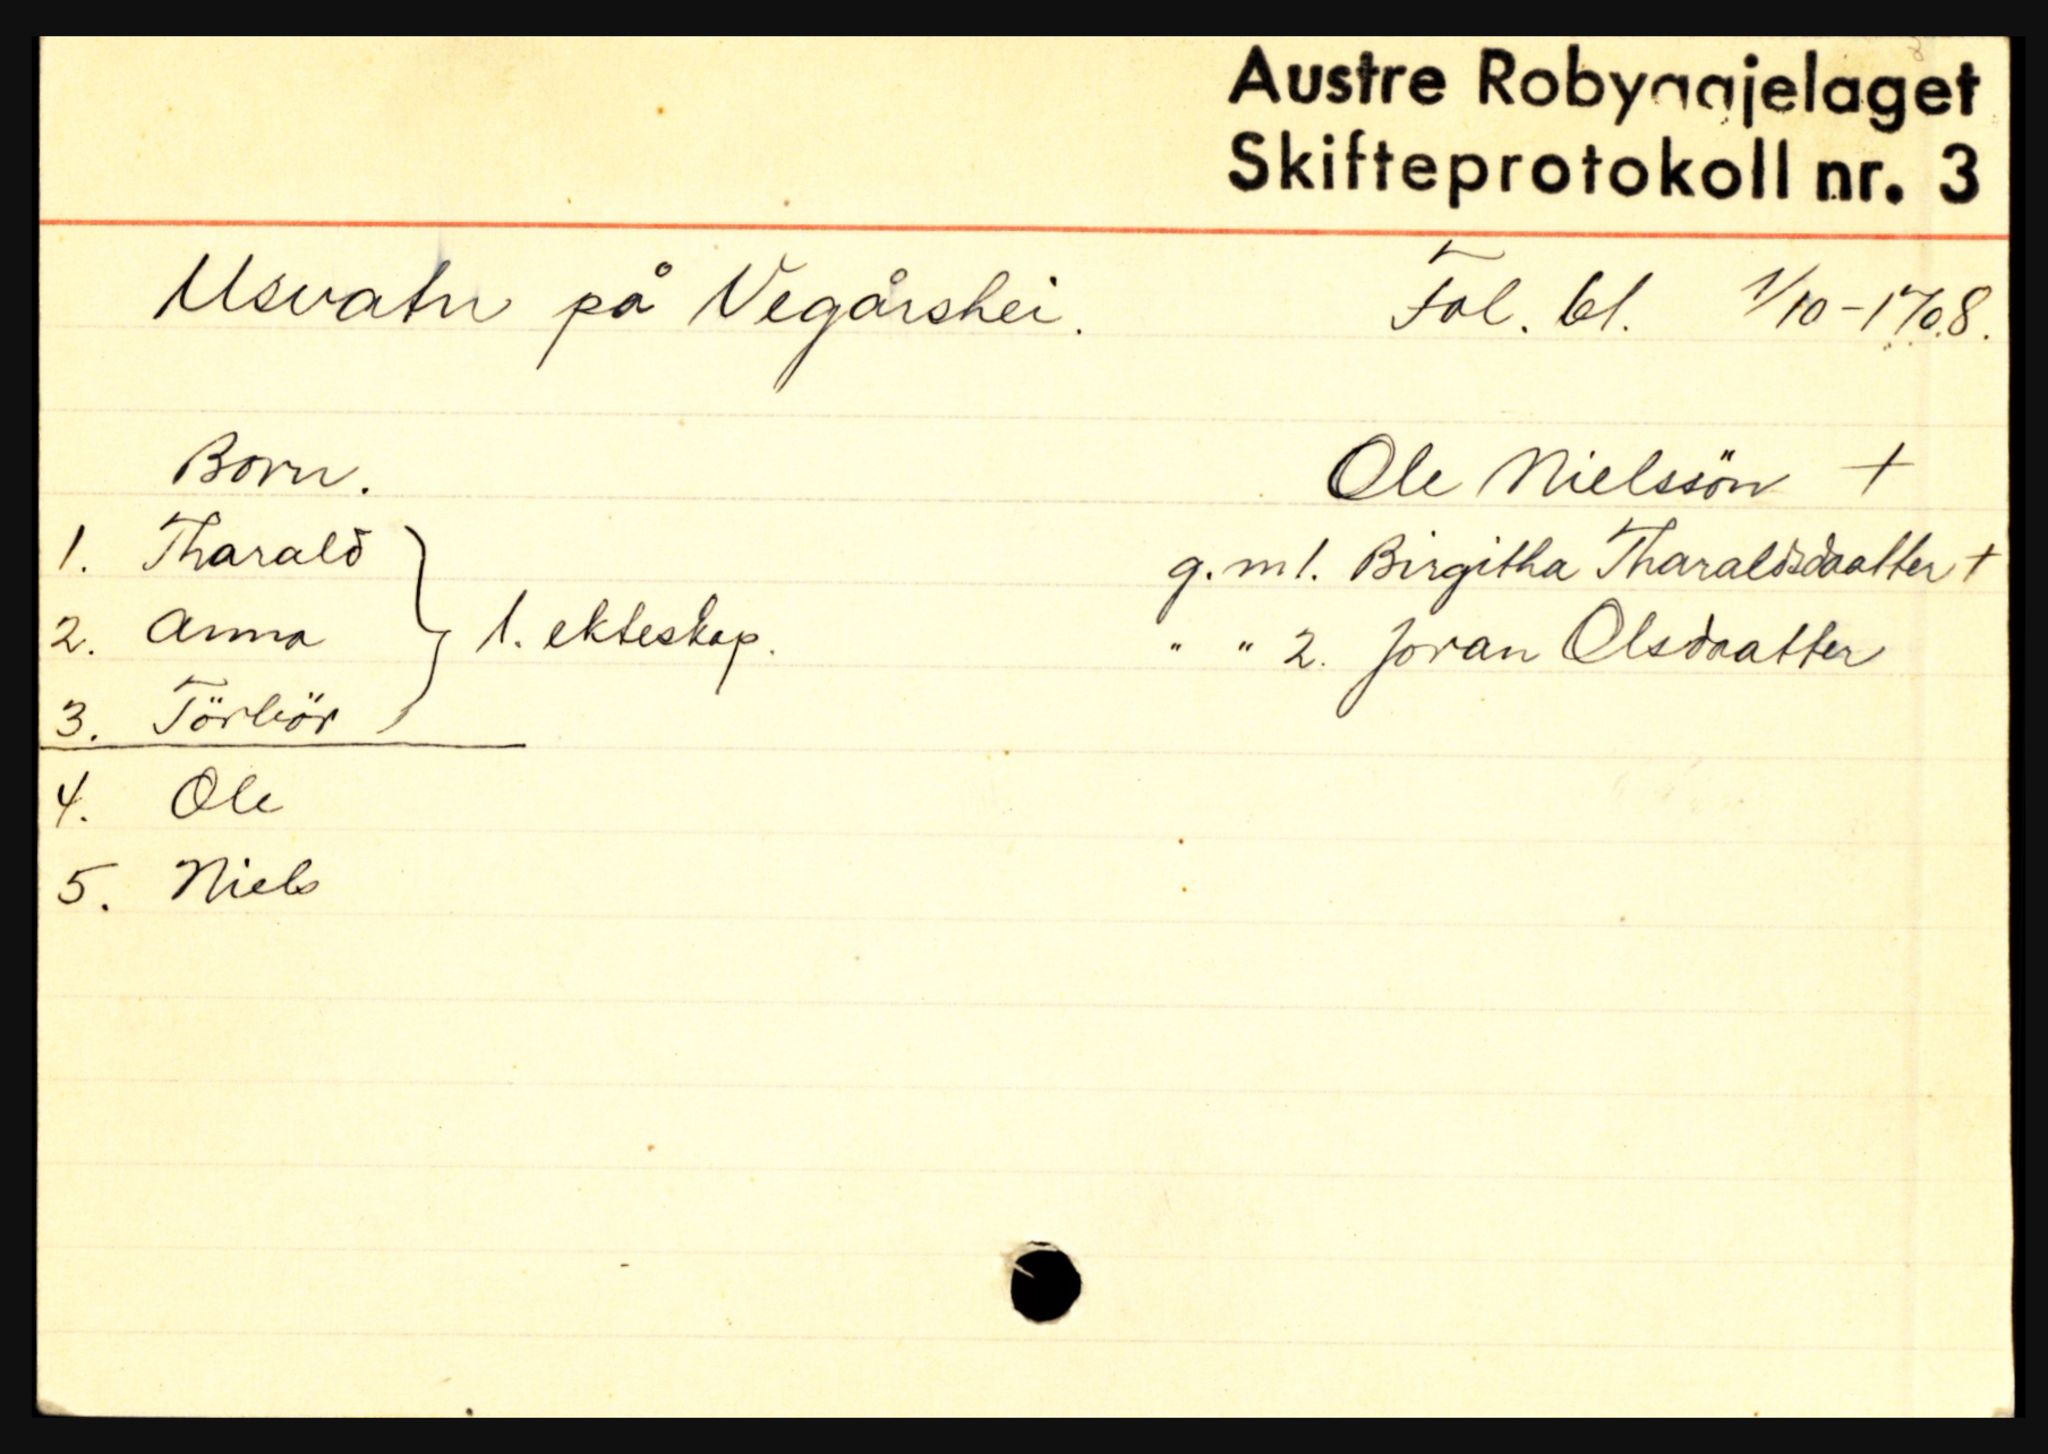 Austre Robyggjelaget
Skifteprotokoll nr. 3
Usvatn på Vegårshei. Fol. bl. 1/10-1708.
Born. Ole Nielssön +
1. Tharald g.m 1. Birgitha Tharaldsdaatter +
2. Anna 1. ekteskap. " " 2. Joran Olsdaatter
3.
4. Ole
5. Niels